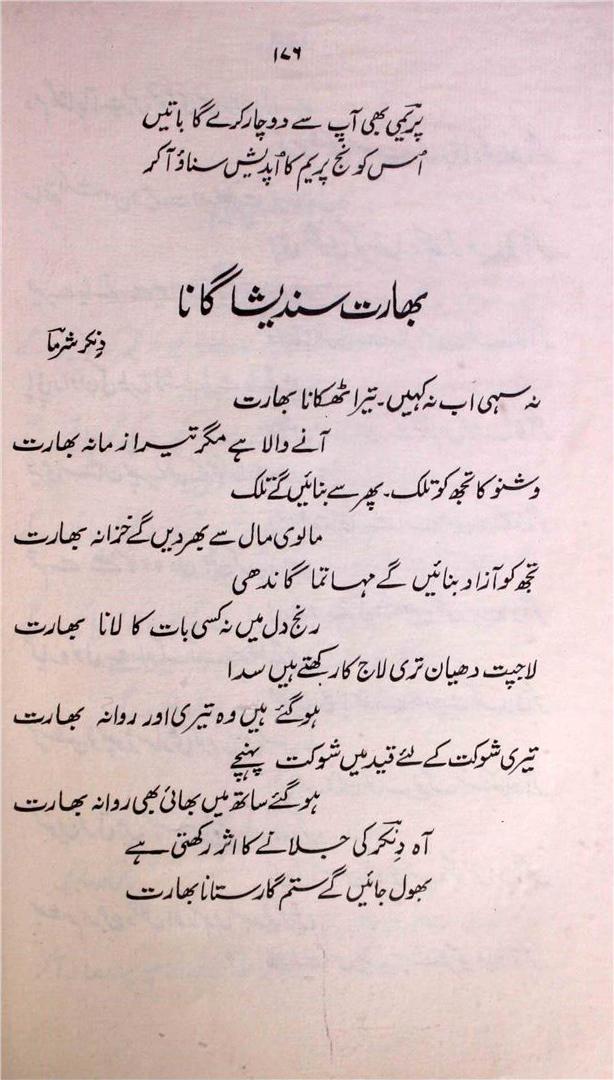 ۱۷۶
پریمی بھی آپ سے دوچار کرے گا باتیں
اُس کو نج پریم کا اُپدیش سناؤ آ کر
بھارت سندیشا گانا
دِنکر شرما
نہ سہی اب نہ کہیں۔ تیرا ٹھکانا بھارت
آنے والا ہے مگر تیرا زمانہ بھارت
وشنو کا تجھ کو تلک۔ پھر سے بنائیں گے تلک
مالوی مال سے بھر دیں گے خزانہ بھارت
تجھ کو آزاد بنائیں گے مہاتما گاندھی
رنج دل میں نہ کسی بات کا لانا بھارت
لاجپت دھیان تری لاج کا رکھتے ہیں سدا
ہو گئے ہیں وہ تیری اور روانہ بھارت
تیری شوکت کے لئے قید میں شوکت پہنچے
ہو گئے ساتھ میں بھائی بھی روانہ بھارت
آہ دِنکر کی جلانے کا اثر رکھتی ہے
بھول جائیں گے ستم گار ستانا بھارت